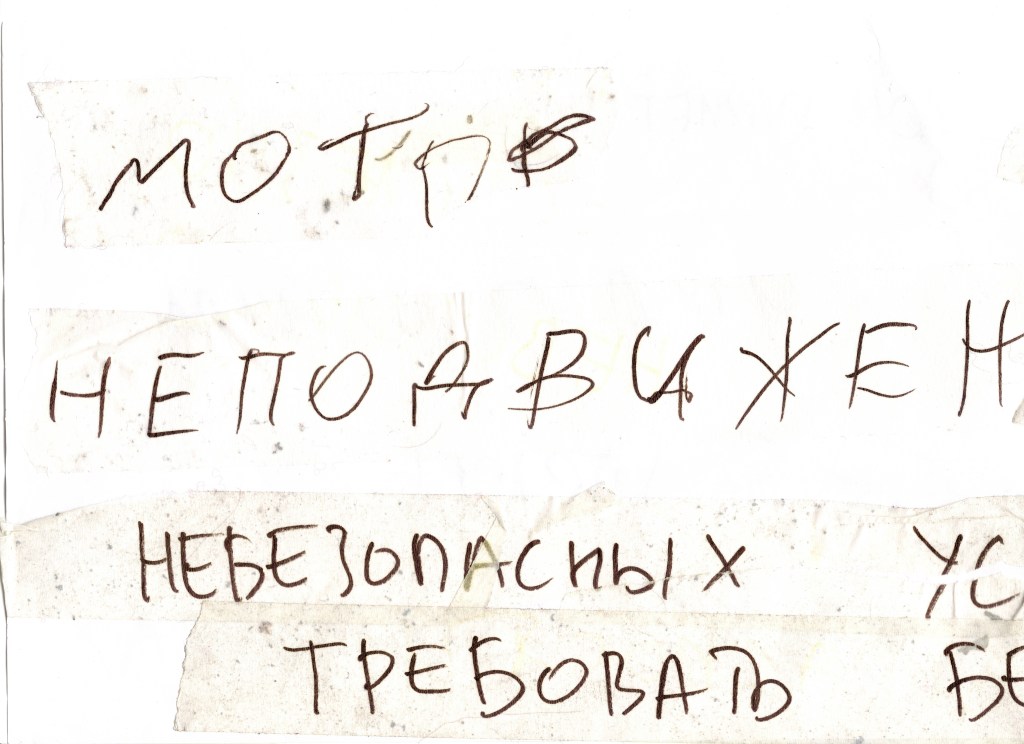 НЕПОДВИЖЕН
НЕБЕЗОПАСНЫХ УС
ТРЕБОВАТЬ БЕ